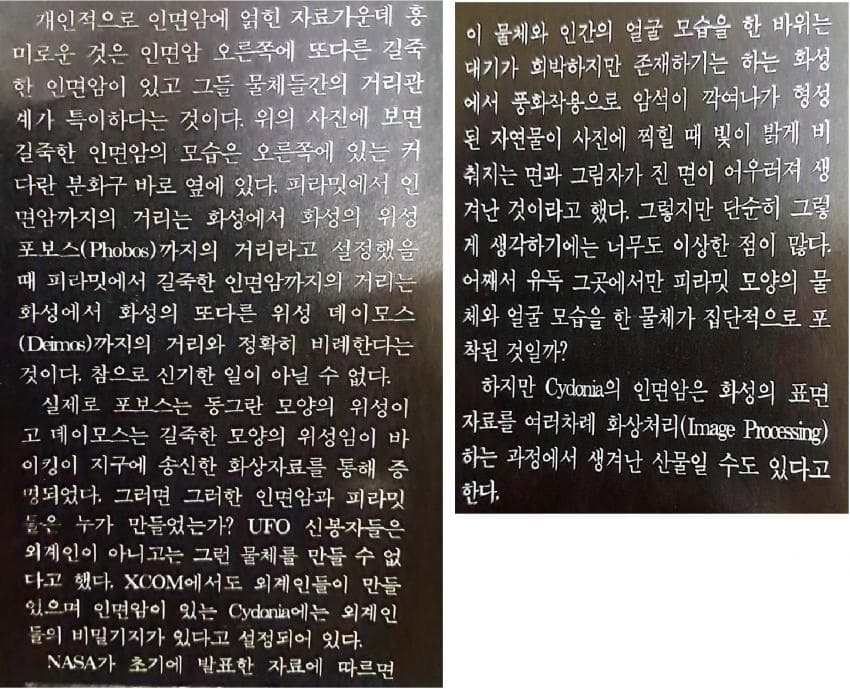 개인적으로 인면암에 얽힌 자료가운데 흥
미로운 것은 인면암 오른쪽에 또다른 길죽
한 인면암이 있고 그들 물체들간의 거리관
계가 특이하다는 것이다. 위의 사진에 보면
길죽한 인면암의 모습은 오른쪽에 있는 커
다란 분화구 바로 옆에 있다. 피라밋에서 인
면암까지의 거리는 화성에서 화성의 위성
포보스(Phobos)까지의 거리라고 설정했을
때 피라밋에서 길죽한 인면암까지의 거리는
화성에서 화성의 또다른 위성 데이모스
(Deimos)까지의 거리와 정확히 비례한다는
것이다. 참으로 신기한 일이 아닐 수 없다.
실제로 포보스는 동그란 모양의 위성이
고 데이모스는 길죽한 모양의 위성임이 바
이킹이 지구에 송신한 화상자료를 통해 증
명되었다. 그러면 그러한 인면암과 피라밋
들은 누가 만들었는가? UFO 신봉자들은
외계인이 아니고는 그런 물체를 만들 수 없
다고 했다. XCOM에서도 외계인들이 만들
었으며 인면암이 있는 Cydonia에는 외계인
들의 비밀기지가 있다고 설정되어 있다.
NASA가 초기에 발표한 자료에 따르면
이 물체와 인간의 얼굴 모습을 한 바위는
대기가 희박하지만 존재하기는 하는 화성
에서 풍화작용으로 암석이 깍여나가 형성
된 자연물이 사진에 찍힐 때 빛이 밝게 비
춰지는 면과 그림자가 진 면이 어우러져 생
겨난 것이라고 했다. 그렇지만 단순히 그렇
게 생각하기에는 너무도 이상한 점이 많다.
어째서 유독 그곳에서만 피라밋 모양의 물
체와 얼굴 모습을 한 물체가 집단적으로 포
착된 것일까?
하지만 Cydonia의 인면암은 화성의 표면
자료를 여러차례 화상처리(Image Processing)
하는 과정에서 생겨난 산물일 수도 있다고
한다.